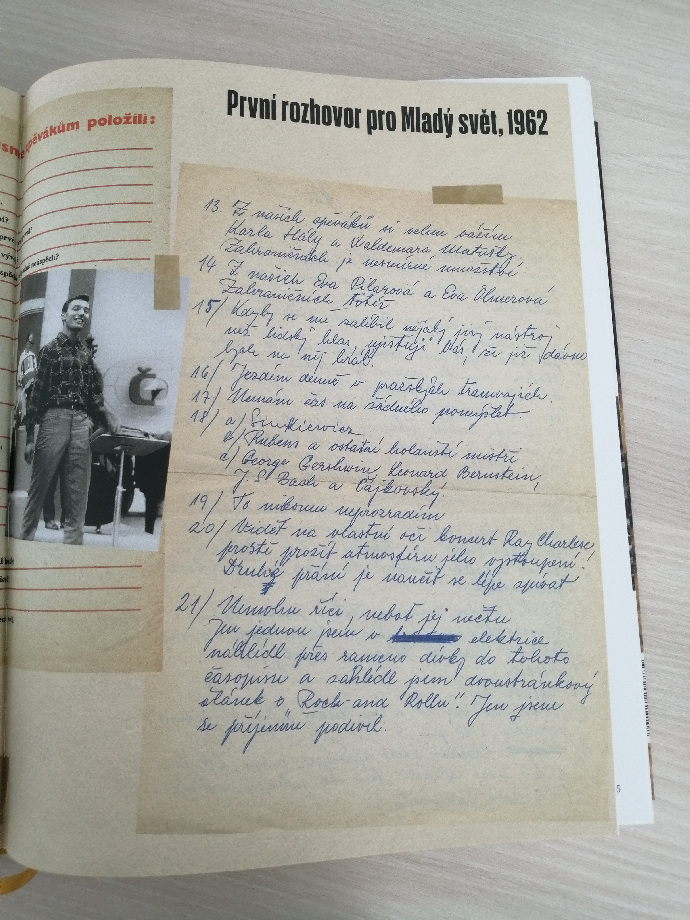 zpěvákům položili:
První rozhovor pro Mladý svět, 1962
13. Z našich zpěváků si velmi vážím
Karla Hály a Valdemara Matušky,
Zahraničních je nesmírné množství
14 Z našich Eva Pilarová a Eva Olmerová
Zahraničních
15/ Kdyby se mi zalíbil nějaký jiný nástroj
než lidský hlas, ujišťuji Vás, že již dávno
bych na něj hrál.
16/ Jezdím denně v pražských tramvajích.
17/ Nemám čas na žádného pomyslet
18/ a/ Sienkiewicz
b/ Rubens a ostatní holandští mistři
c/ George Gershwin, Leonard Bernstein,
J. S. Bach a Čajkovský
19/ To nikomu neprozradím
20/ Vidět na vlastní oči koncert Ray Charlese/
prostě prožít atmosféru jeho vystoupení!
Druhé přání je naučit se lépe zpívat
21/ Nemohu říci, neboť jej nečtu
Jen jednou jsem v elektrice
nahlédl přes rameno dívky do tohoto
časopisu a zahlédl jsem dvoustránkový
článek o „Rock-and Rollu". Jen jsem
se příjemně podivil.